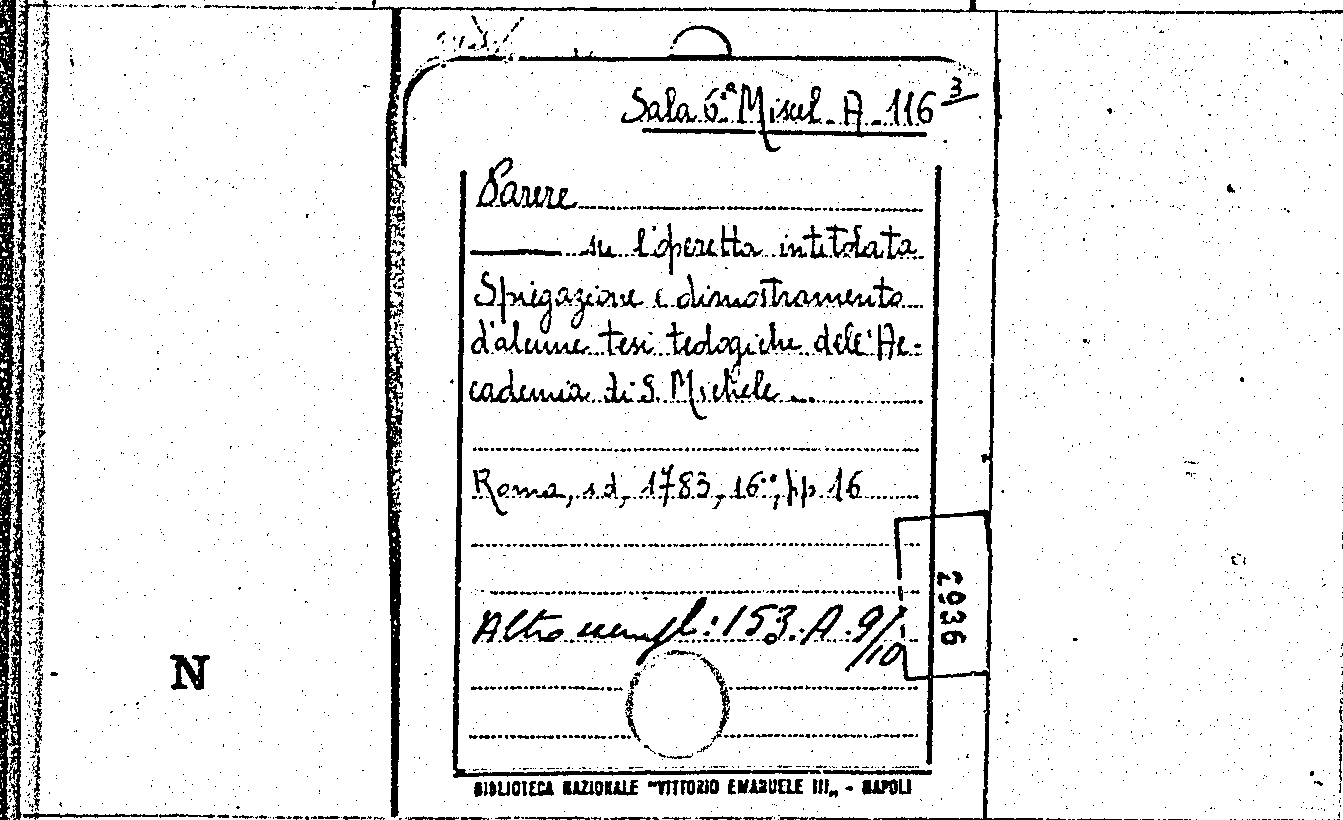 Sala 6ª Miscel. A. 116 3
Parere
su l'operetta intitolata
Spiegazione e dimostramento
d'alcune tesi teologiche dell'Ac-
cademia di S. Michele ...
Roma, s.d, 1783, 16°, pp 16
Altro esempl: 153. A. 9/10
2936
N
BIBLIOTECA NAZIONALE "VITTORIO EMANUELE III„ - NAPOLI